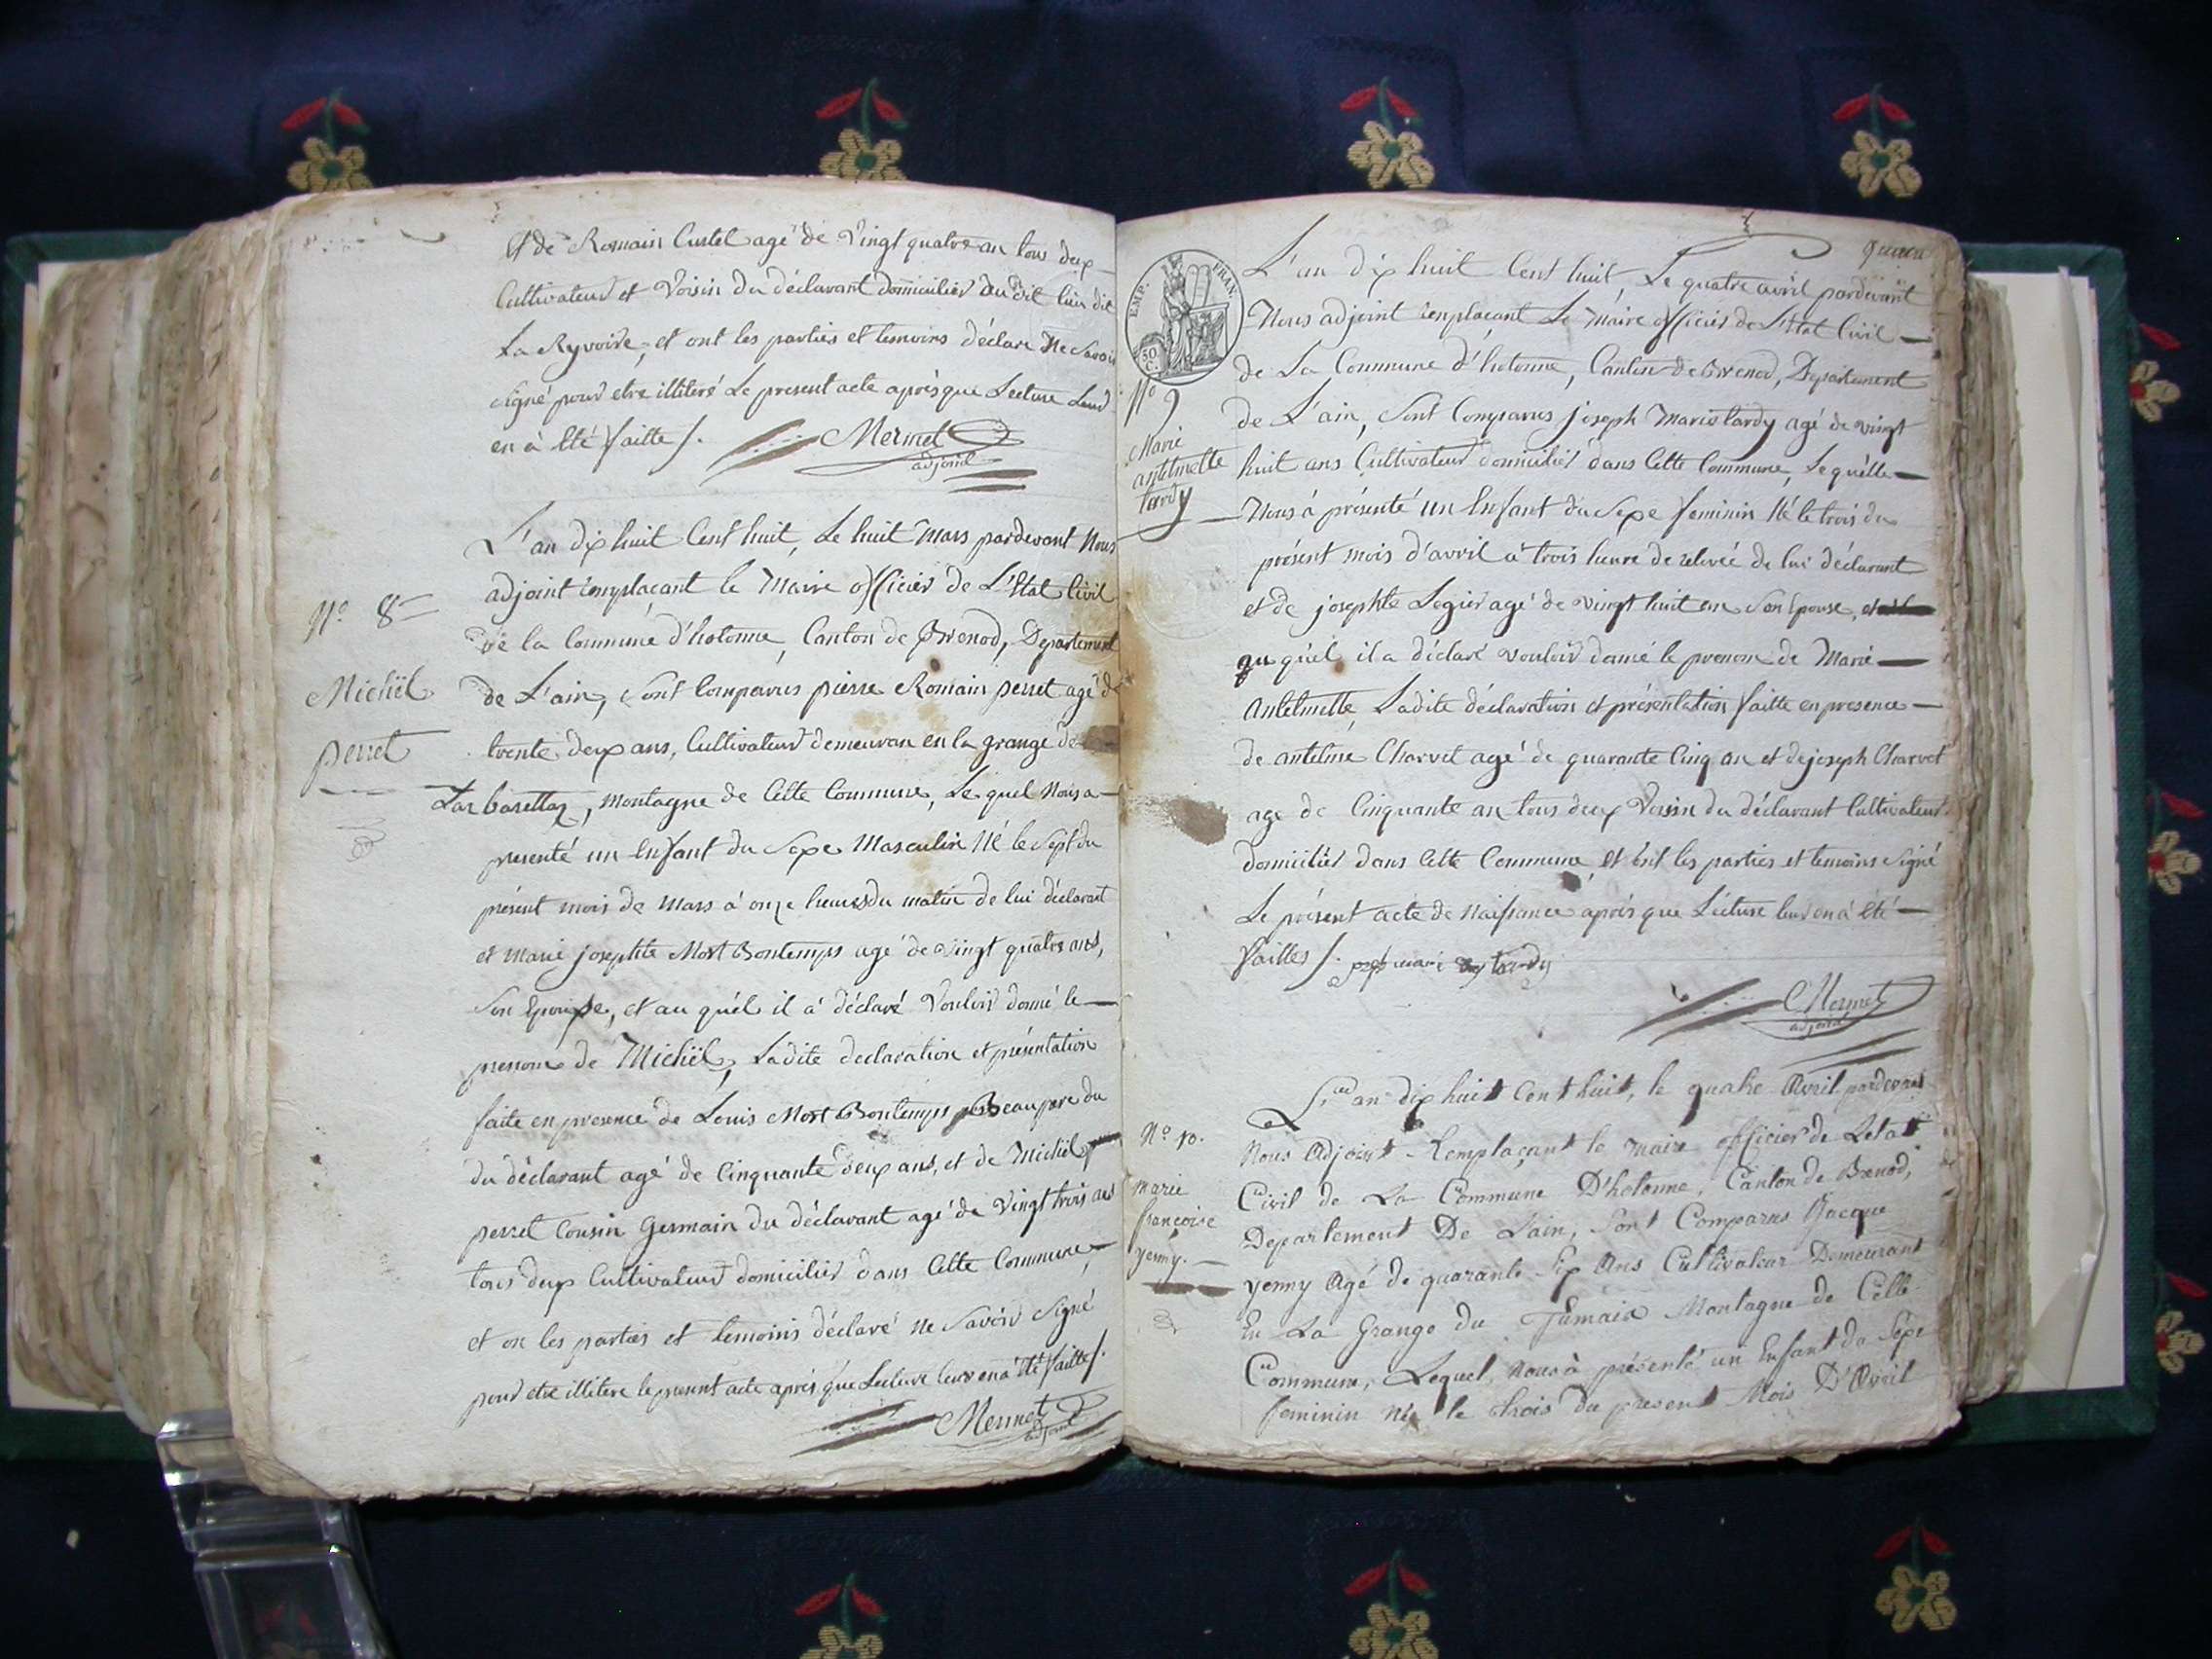 Et de Romain Custel agé de vingt quatre an tous deux
Cultivateur et Voisin du déclarant domicilier au dit lieu dit
La Ryvoire, et ont les parties et temoins déclare Ne Savoir
Signé pour etre illiteré Le present acte aprés que Lecture Leur
en à Eté faitte /.
Mermet
adjoint
L'an dix huit Cent huit, Le huit Mars pardevant Nous
adjoint remplacant le Maire officier de L'Etat Civil
de la Commune d'hotonne, Canton de Brenod, Departement
de L'ain, Sont Comparus pierre Romain perret agé de
trente deux ans, Cultivateur demeuran en la grange de
Lar barettaz, montagne de Cette Commune, Le quel Nous a
presenté un Enfant du Sexe Masculin Né le Sept du
présent mois de Mars à onze heures du matin de lui déclarant
et Marie josephte Mort Bontemps agé de vingt quatre ans,
Son Epouse, et au quél il à déclaré Vouloir donné le
prenom de Michiel, Ladite declaration et présentation
faite en presence de Louis Mort Bontemps Beaupere du
du déclarant agé de Cinquante deux ans, et de Michiel
perret Cousin Germain du déclarant agé de Vingt trois ans
tous deux Cultivateur domicilier dans Cette Commune
et on les parties et temoins déclaré Ne Savoir Signé
pour etre illitere le present acte aprés que Lecture leur en à Eté faitte /.
Mermet
adjoint
N° 8
Michiel
perret
EMP. FRAN.
50 C.
L'an dix huit Cent huit, Le quatre avril pardevant
Nous adjoint remplacant Le Maire officier de L'Etat Civil
de La Commune d'hotonne, Canton de Brenod, Departement
de L'ain, Sont Comparus joseph Marie tardy agé de vingt
huit ans Cultivateur domicilier dans Cette Commune, Lequélle
Nous à présenté un Enfant du Sexe feminin Né le trois du
présent mois d'avril à trois heure de relevée de lui déclarant
et de josephte Legier agé de vingt huit an Son Epouse,
qu quél il a déclaré vouloir donné le prenom de Marie
Antelmette, Ladite déclaration et présentation faitte en presence
de antelme Charvet agé de quarante Cinq an et de joseph Charvet
age de Cinquante an tous deux Voisin du déclarant Cultivateur
domicilier dans Cette Commune, et ont les parties et temoins Signé
Le présent acte de Naissance aprés que Lecture leur en à Eté
faittes /. marie tardy
Mermet
adjoint
N° 9
Marie
antelmette
tardy
L'an dix huit Cent huit, le quatre Avril pardevant
Nous Adjoint Remplacant le maire officier de Letat
Civil de La Commune D'hotonne, Canton de Brenod,
Departement De Lain, Sont Comparus Jacque
yenny Agé de quarante Six Ans Cultivateur Demeurant
En La Grange du Montagne de Cette
Commune, Lequel, nous à présenté un Enfant du Sexe
feminin né le trois du présent Mois D'Avril
N° 10.
marie
françoise
yenny.